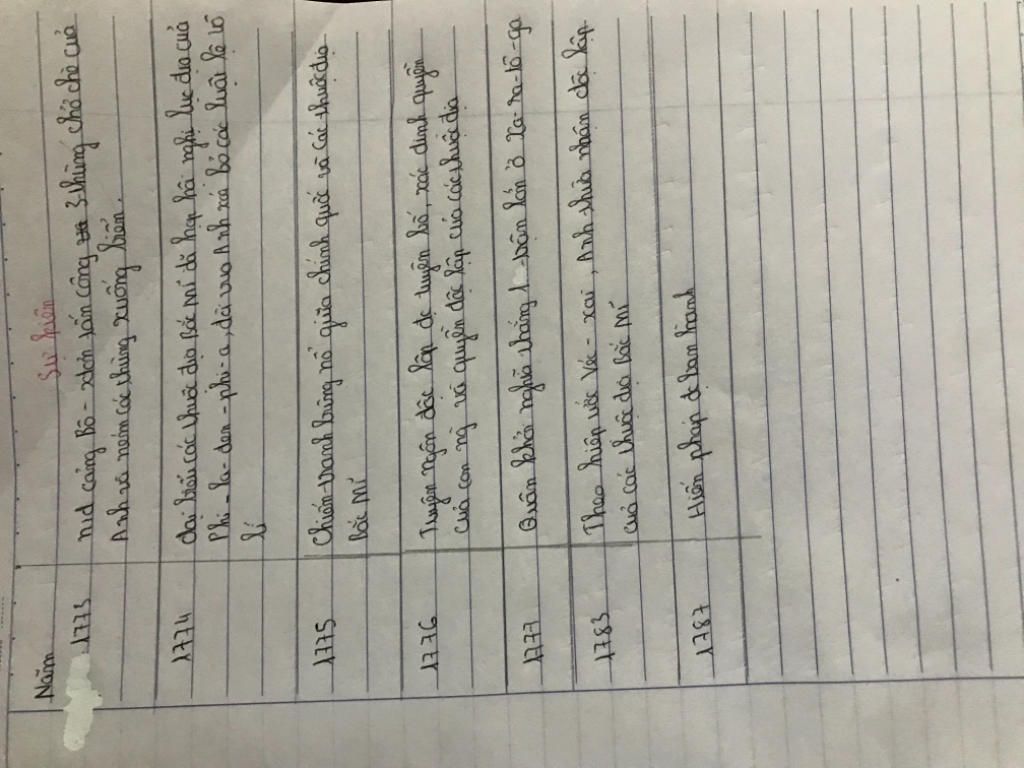 Năm Sự kiện
1773 nid cảng Bô - xtơn tấn công 3 thùng chở chè của
Anh và ném các thùng xuống biển.
1774 đại biểu các thuộc địa Bắc Mĩ đi họp hội nghị lục địa của
Phi - la - đen - phi - a, đòi vua Anh xoá bỏ các luật lệ vô
lí
1775 Chiến tranh bùng nổ giữa chính quốc và các thuộc địa
Bắc Mĩ
1776 Tuyên ngôn độc lập đc tuyên bố, xác định quyền
của con ng và quyền độc lập của các thuộc địa
1777 Quân khởi nghĩa thắng 1 trận lớn ở Xa-ra-tô-ga
1783 Theo hiệp ước Véc - xai, Anh thừa nhận độc lập
của các thuộc địa Bắc Mĩ
1787 Hiến pháp đc ban hành